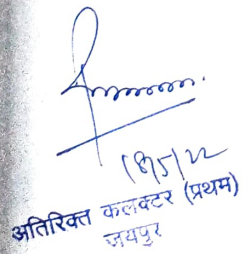 18/5/22
अतिरिक्त कलक्टर (प्रथम)
जयपुर